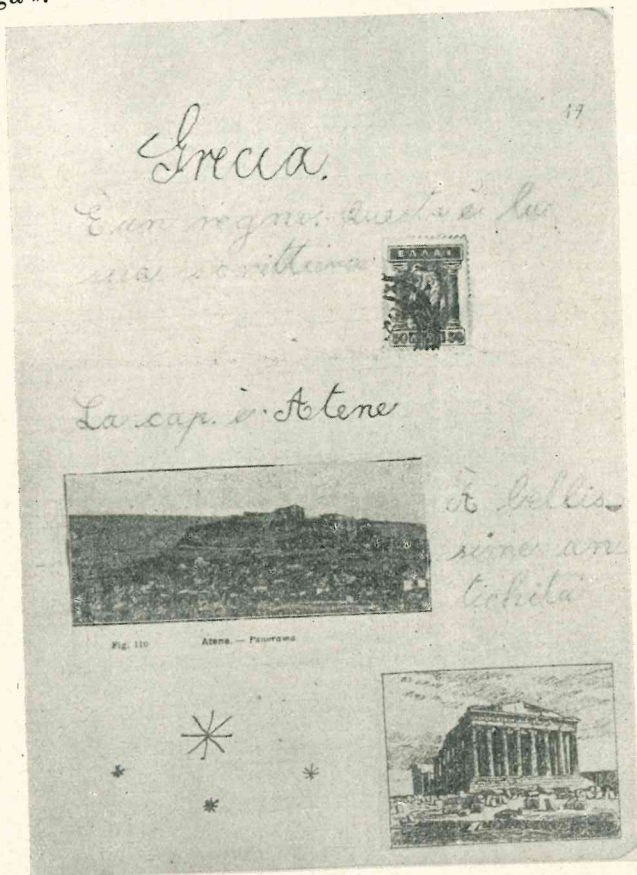 19
Grecia.
È un regno. Questa è la
sua scrittura
ΕΛΛΑΣ
50 50
La cap. è Atene
À bellis-
sime an
tichità
Fig. 110 Atene. — Panorama